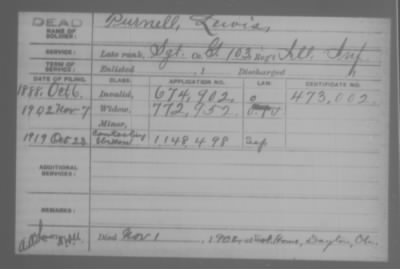 DEAD
NAME OF SOLDIER: Purnell, Lewis,
SERVICE: Late rank, Sgt. Co. G, 103, Reg't Ill. Inf
TERM OF SERVICE: Enlisted , 1 Discharged
DATE OF FILING. CLASS. APPLICATION NO. LAW. CERTIFICATE NO.
1888. Oct 6. Invalid, 674,902, 473,002.
1902 Nov 7 Widow, 772,952
Minor,
1919 Oct 23 Contesting Widow 1148498
ADDITIONAL SERVICES:
REMARKS:
Died Nov 1, 1902, at Sol. Home, Dayton, Oh.